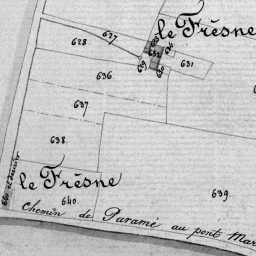 le Fresne
628
627
632
631
629
630
636
637
638
le Fresne
640
639
Chemin de Paramé au pont Mar